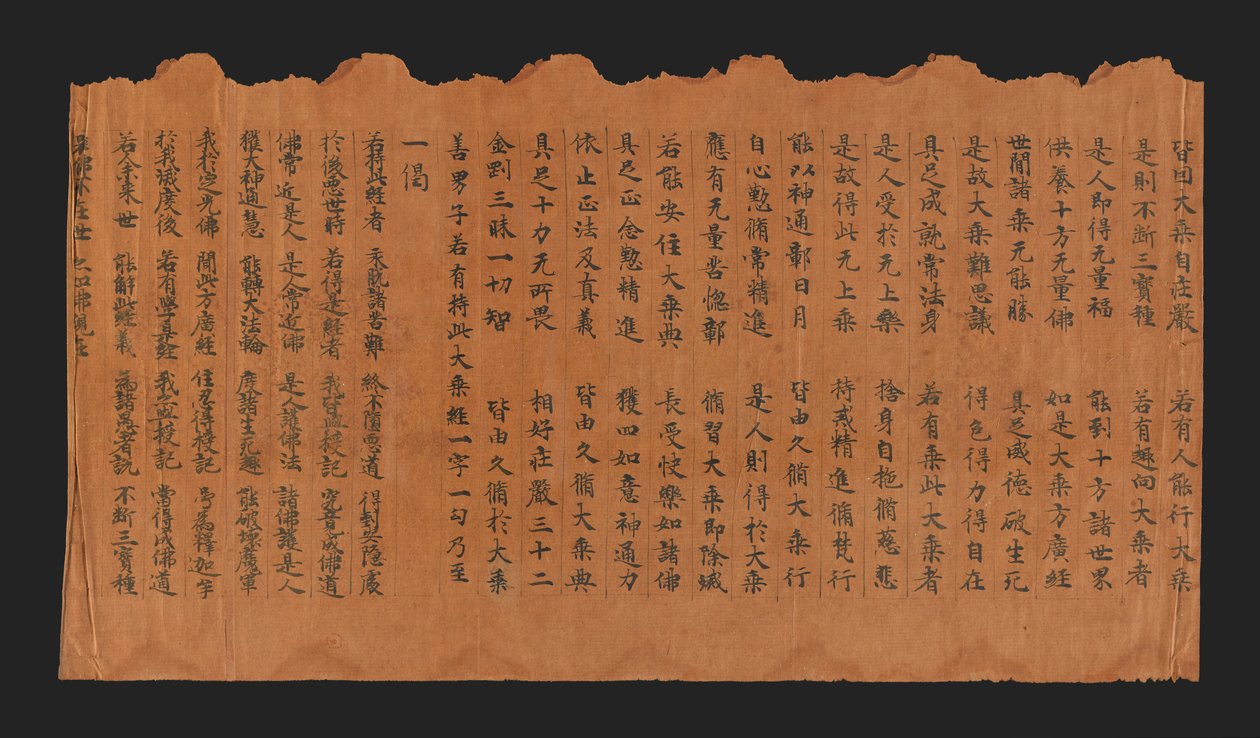 皆曰大乘自在嚴 若有人能行大乘
是則不断三寳種 若有趣向大乘者
是人即得无量福 能到十方諸世界
供養十方无量佛 如是大乘方廣經
世閒諸乘无能勝 具足威德破生死
是故大乘難思議 得色得力得自在
具足成就常法身 若有乘此大乘者
是人受於无上樂 捨身自拖脩慈悲
是故得此无上乘 持戒精進脩梵行
能以神通鄣日月 皆由久脩大乘行
自心懃脩常精進 是人則得於大乘
應有无量苦惚鄣 脩習大乘即除滅
若能安住大乘典 長受快樂如諸佛
具足正念懃精進 獲四如意神通力
依止正法及真義 皆由久脩大乘典
具足十力无所畏 相好莊嚴三十二
金剛三昧一切智 皆由久脩於大乘
善男子若有持此大乘經一字一句乃至
一偈
若持此經者 永脫諸苦難 終不墮惡道 得到安隱處
於後惡世時 若得是經者 我皆與授記 究竟成佛道
佛常近是人 是人常近佛 是人護佛法 諸佛護是人
獲大神通慧 能轉大法輪 度諸生死趣 能破壞魔軍
我於定光佛 聞此方廣經 住忍得授記 号為釋迦牟
於我滅度後 若有學真經 我亦與授記 當得成佛道
若人未来世 能解此經義 為諸愚者說 不断三寳種
是佛不在世 之如佛現在